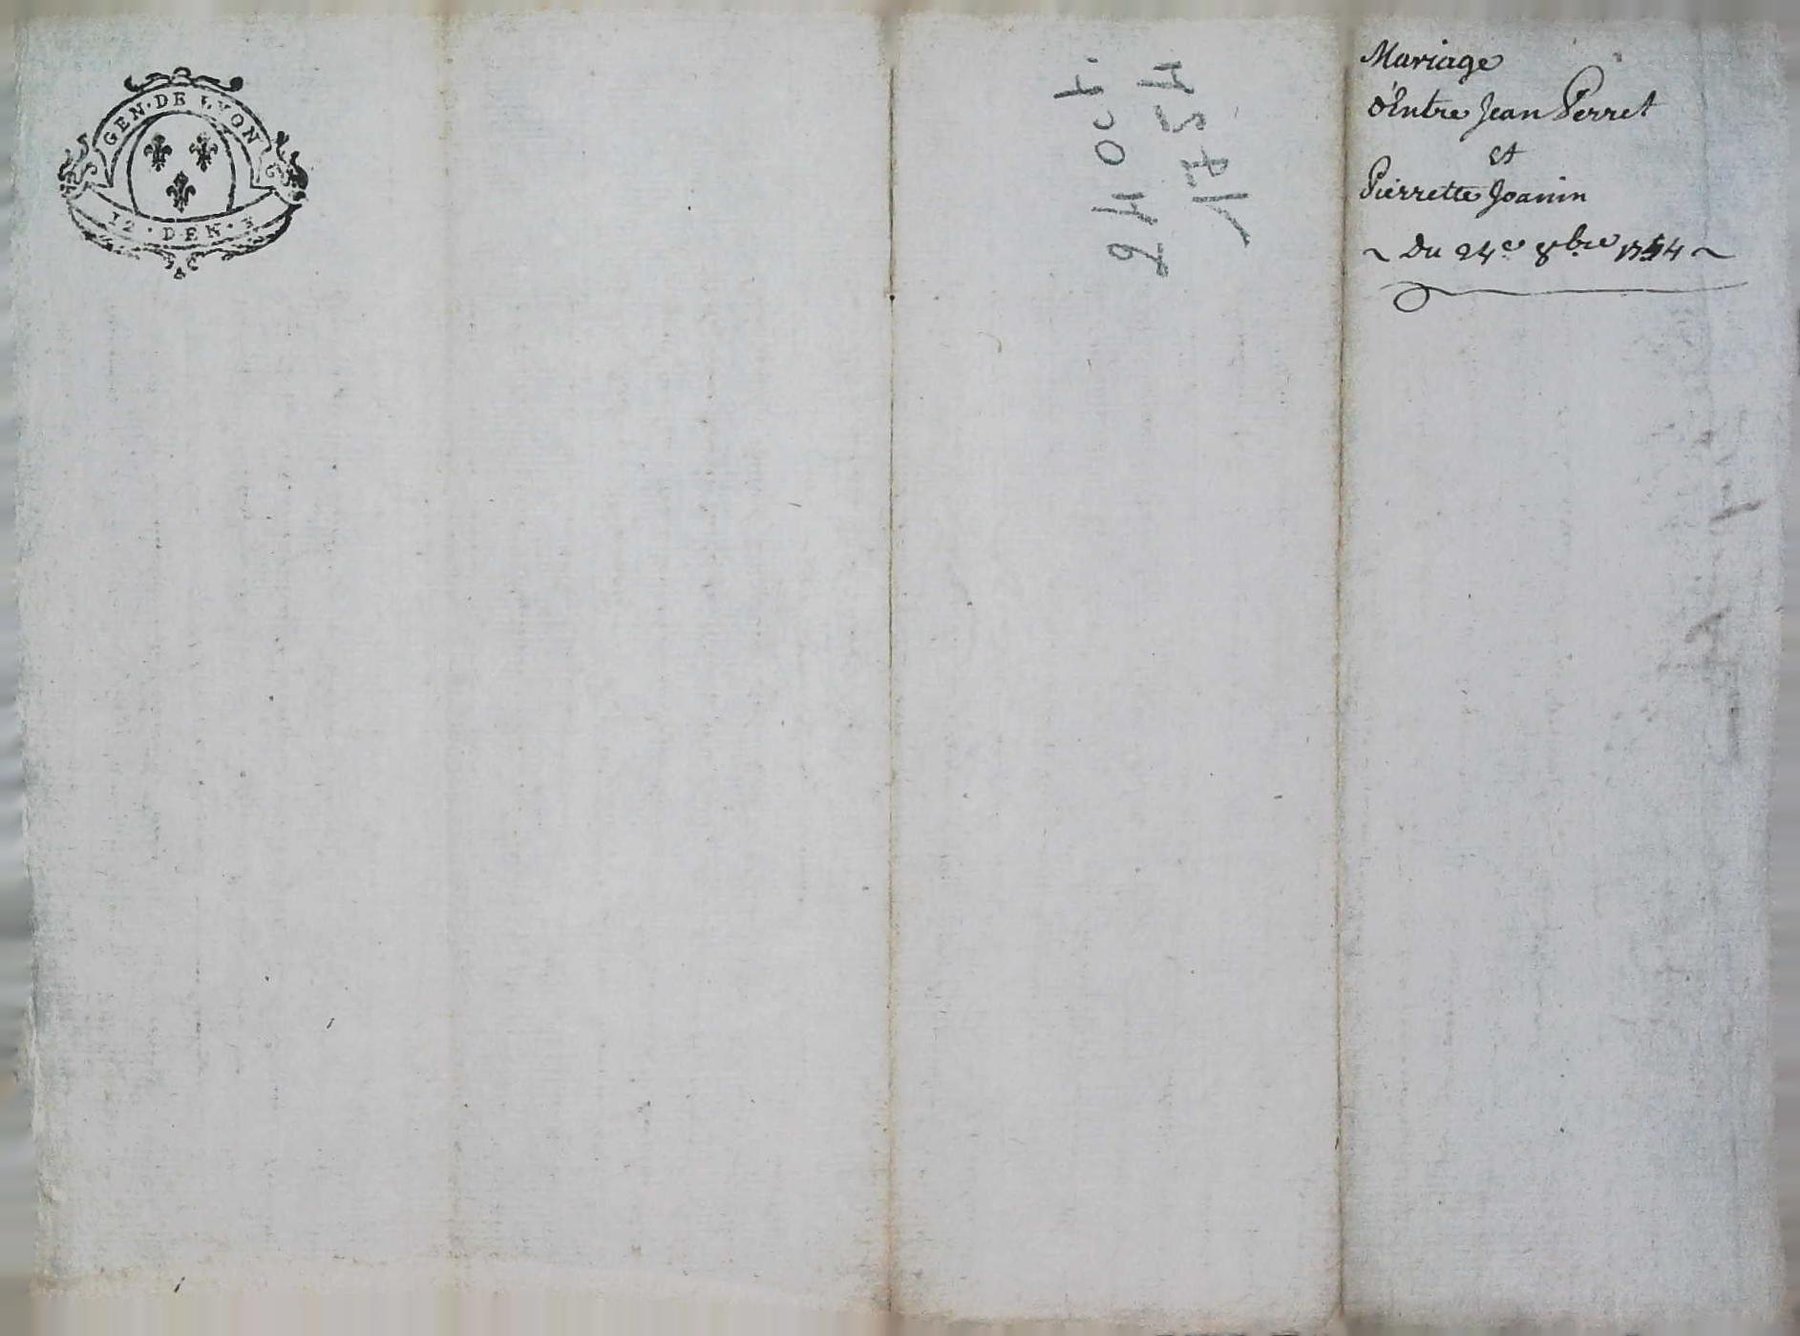 GEN·DE LYON
12·DEN·
24 Oct.
1754
Mariage
d'Entre Jean Perret
et
Pierrette Joanin
~ Du 24e 8bre 1754 ~